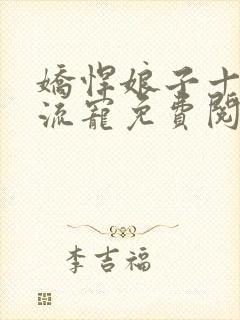 嬌悍娘子十
流寵免費閱
李吉福